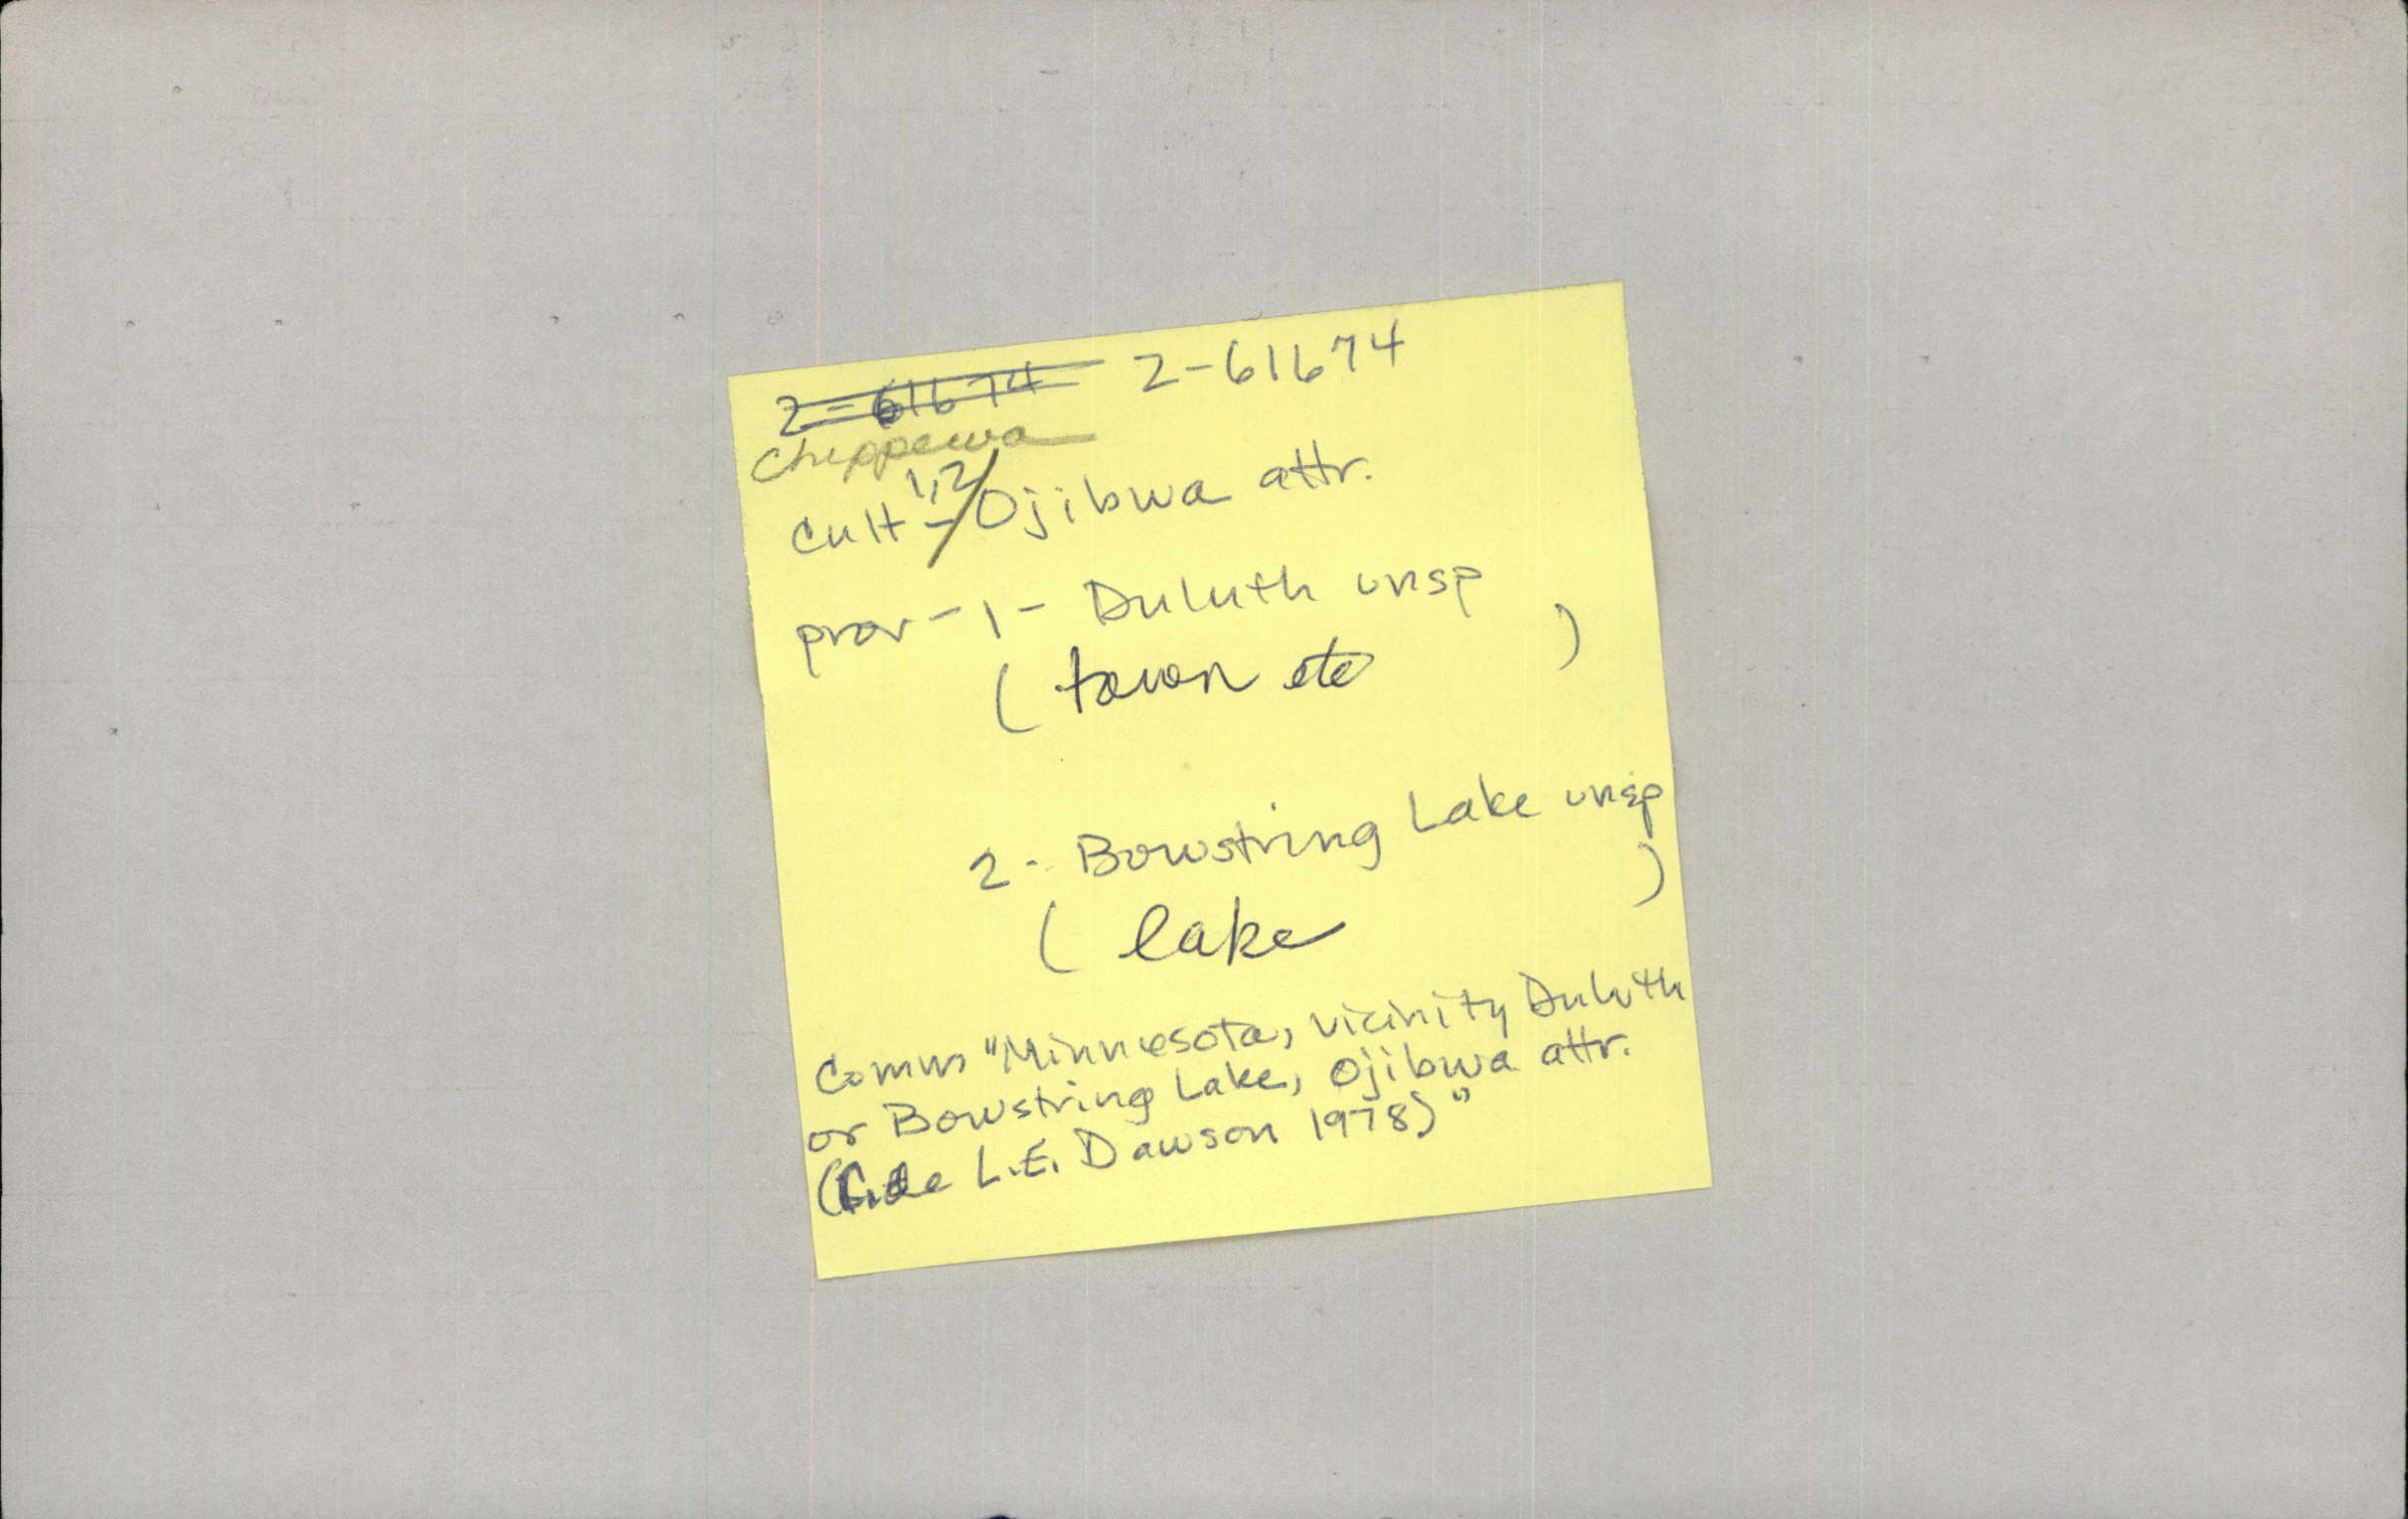 2-61674 2-61674
Chippewa
1,2/
Cult - Ojibwa attr.
prov - 1 - Duluth unsp
( town etc )
2 - Bowstring Lake unsp
( lake )
Comm "Minnesota, vicinity Duluth
or Bowstring Lake, Ojibwa attr.
(fide L.E. Dawson 1978)"